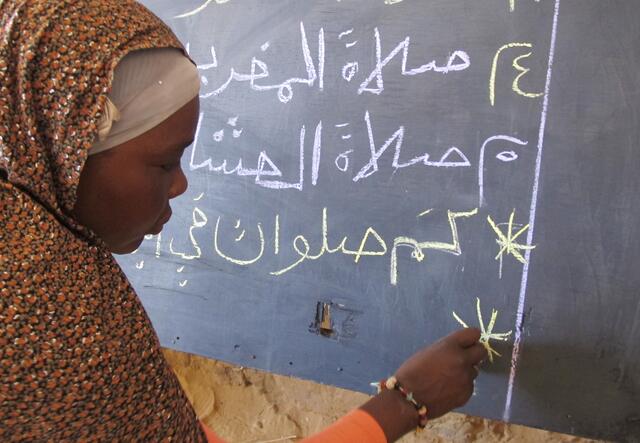 ٤ صلاة المغرب
م صلاة العشا
* كَم صلوات فِي
*